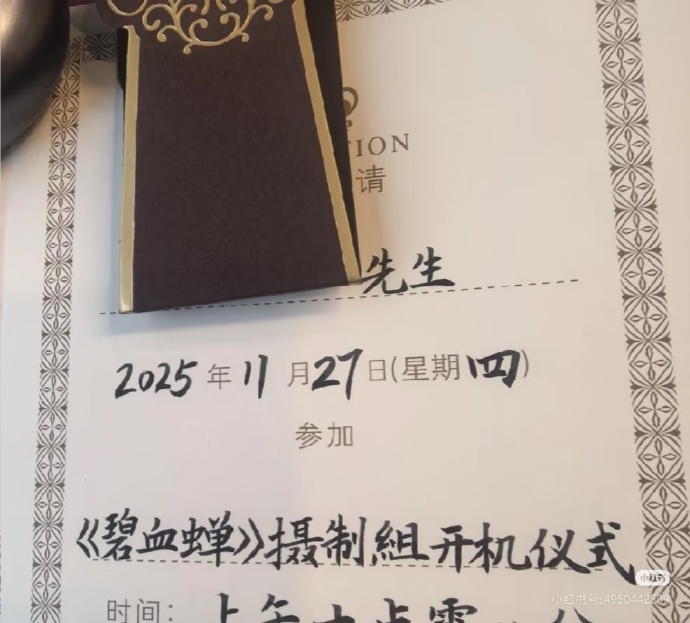 TION
请
先生
2025年11月27日(星期四)
参加
《碧血蝉》摄制組开机仪式
小红书
时间:上午十点零八分
小红书号:4950442809